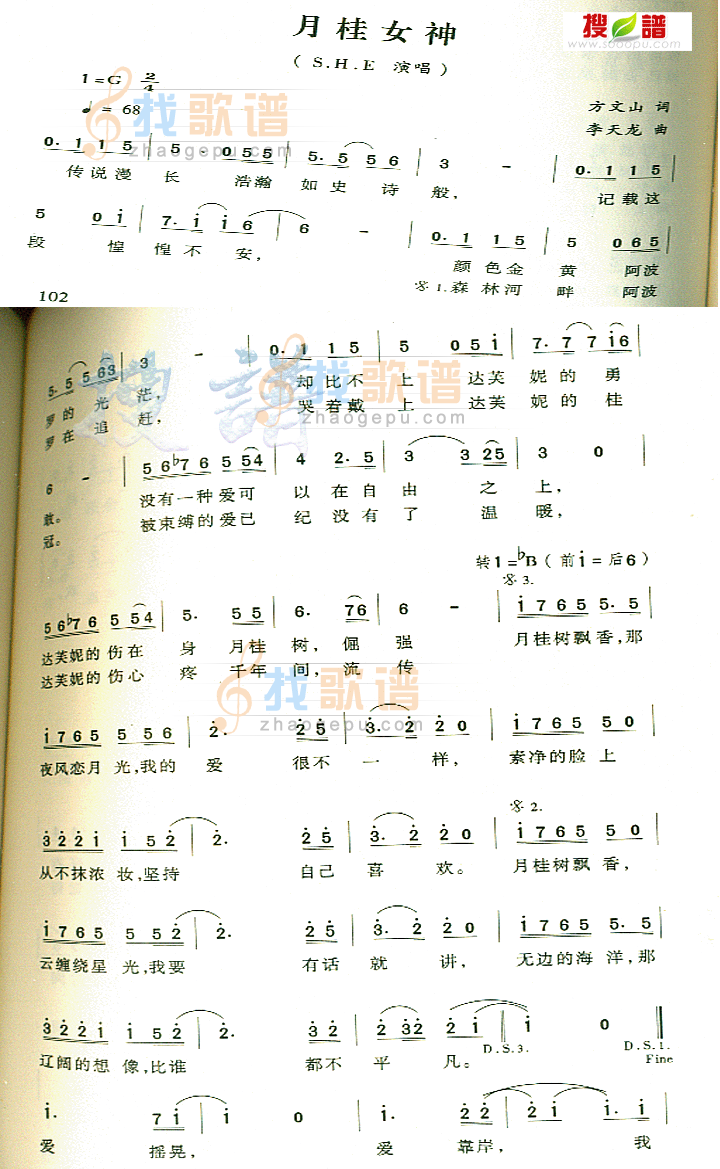 月桂女神
搜谱
www.sooopu.com
( S.H.E 演唱 )
1=G 2/4
♩= 68
方文山 词
李天龙 曲
找歌谱
zhaogepu.com
0. 1 1 5 | 5 · 0 5 5 | 5. 5 5 5 6 | 3 - | 0. 1 1 5 |
传说漫 长 浩瀚 如 史 诗 般, 记载这
5 0 i | 7. i i 6 | 6 - | 0. 1 1 5 | 5 0 6 5 |
段 惶 惶不 安, 颜色金 黄 阿波
𝄋 1. 森林河 畔 阿波
102
5. 5 5 6 3 | 3 - | 0. 1 1 5 | 5 0 5 i | 7. 7 7 i 6 |
罗的 光 茫, 却比不 上 达芙 妮的 勇
罗在 追 赶, 哭着戴 上 达芙 妮的 桂
搜谱
找歌谱
zhaogepu.com
6 - | 5 6 ♭7 6 5 5 5 4 | 4 2. 5 | 3 3 2 5 | 3 0 |
敢。 没有一种爱可 以 在自 由 之 上,
冠。 被束缚的爱已 纪 没有 了 温 暖,
转1=♭B ( 前i=后6 )
𝄋 3.
5 6 ♭7 6 5 5 4 | 5. 5 5 | 6. 7 6 | 6 - | i 7 6 5 5. 5 |
达芙妮的 伤在 身 月桂 树, 倔 强 月桂树飘香,那
达芙妮的 伤心 疼 千年 间, 流 传
找歌谱
zhaogepu.com
i 7 6 5 5 5 6 | 2. 2 5 | 3. 2 2 0 | i 7 6 5 5 0 |
夜风恋月 光,我的 爱 很不 一 样, 素净的脸 上
𝄋 2.
3 2 2 i i 5 2 | 2. 2 5 | 3. 2 2 0 | i 7 6 5 5 0 |
从不抹浓 妆,坚持 自己 喜 欢。 月桂树飘 香,
i 7 6 5 5 5 2 | 2. 2 5 | 3. 2 2 0 | i 7 6 5 5. 5 |
云缠绕星 光,我要 有话 就 讲, 无边的海 洋,那
3 2 2 i i 5 2 | 2. 3 2 | 2 3 2 2 i | i 0 ‖
辽阔的想 像,比谁 都不 平 凡。
D.S.3. D.S.1.
Fine
i. 7 i | i 0 | 2 2 2 i | i. i |
爱 摇晃, 爱 靠岸, 我